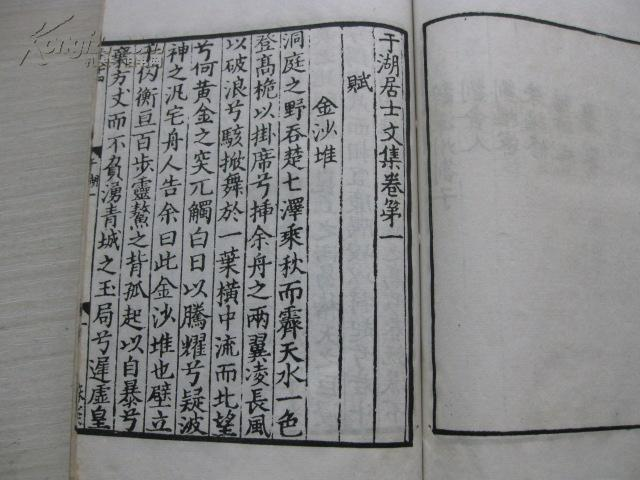 于湖居士文集卷第一
賦
金沙堆
洞庭之野吞楚七澤乘秋而霽天水一色
登髙桅以掛席兮揷余舟之兩翼凌長風
以破浪兮駭掀舞於一葉橫中流而北望
兮何黃金之突兀觸白日以騰耀兮疑波
神之汎宅舟人告余曰此金沙堆也壁立
千仞衡亘百步靈鼇之背孤起以自暴兮
方丈而不負湧青城之玉局兮遲虛皇